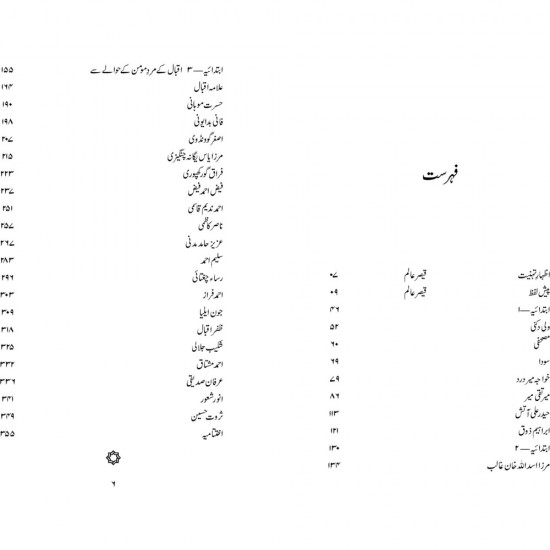 فہرست
اظہارِ تہنیت قیصر عالم ۰۷
پیش لفظ قیصر عالم ۰۹
ابتدائیہ — ۱ ۴۶
ولی دکنی ۵۲
مصحفی ۶۰
سودا ۶۹
خواجہ میر درد ۷۹
میر تقی میر ۸۶
حیدر علی آتش ۱۱۳
ابراہیم ذوق ۱۲۱
ابتدائیہ — ۲ ۱۳۰
مرزا اسد اللہ خان غالب ۱۳۴
ابتدائیہ — ۳ اقبال کے مردِ مومن کے حوالے سے ۱۵۵
علامہ اقبال ۱۶۴
حسرت موہانی ۱۹۰
فانی بدایونی ۱۹۸
اصغر گونڈوی ۲۰۷
مرزا یاس یگانہ چنگیزی ۲۱۵
فراق گورکھپوری ۲۲۳
فیض احمد فیض ۲۳۷
احمد ندیم قاسمی ۲۵۱
ناصر کاظمی ۲۵۷
عزیز حامد مدنی ۲۶۷
سلیم احمد ۲۸۳
رساء چغتائی ۲۹۶
احمد فراز ۳۰۳
جون ایلیا ۳۰۹
ظفر اقبال ۳۱۸
شکیب جلالی ۳۲۵
احمد مشتاق ۳۳۲
عرفان صدیقی ۳۳۶
انور شعور ۳۴۱
ثروت حسین ۳۴۹
اختتامیہ ۳۵۵
۶